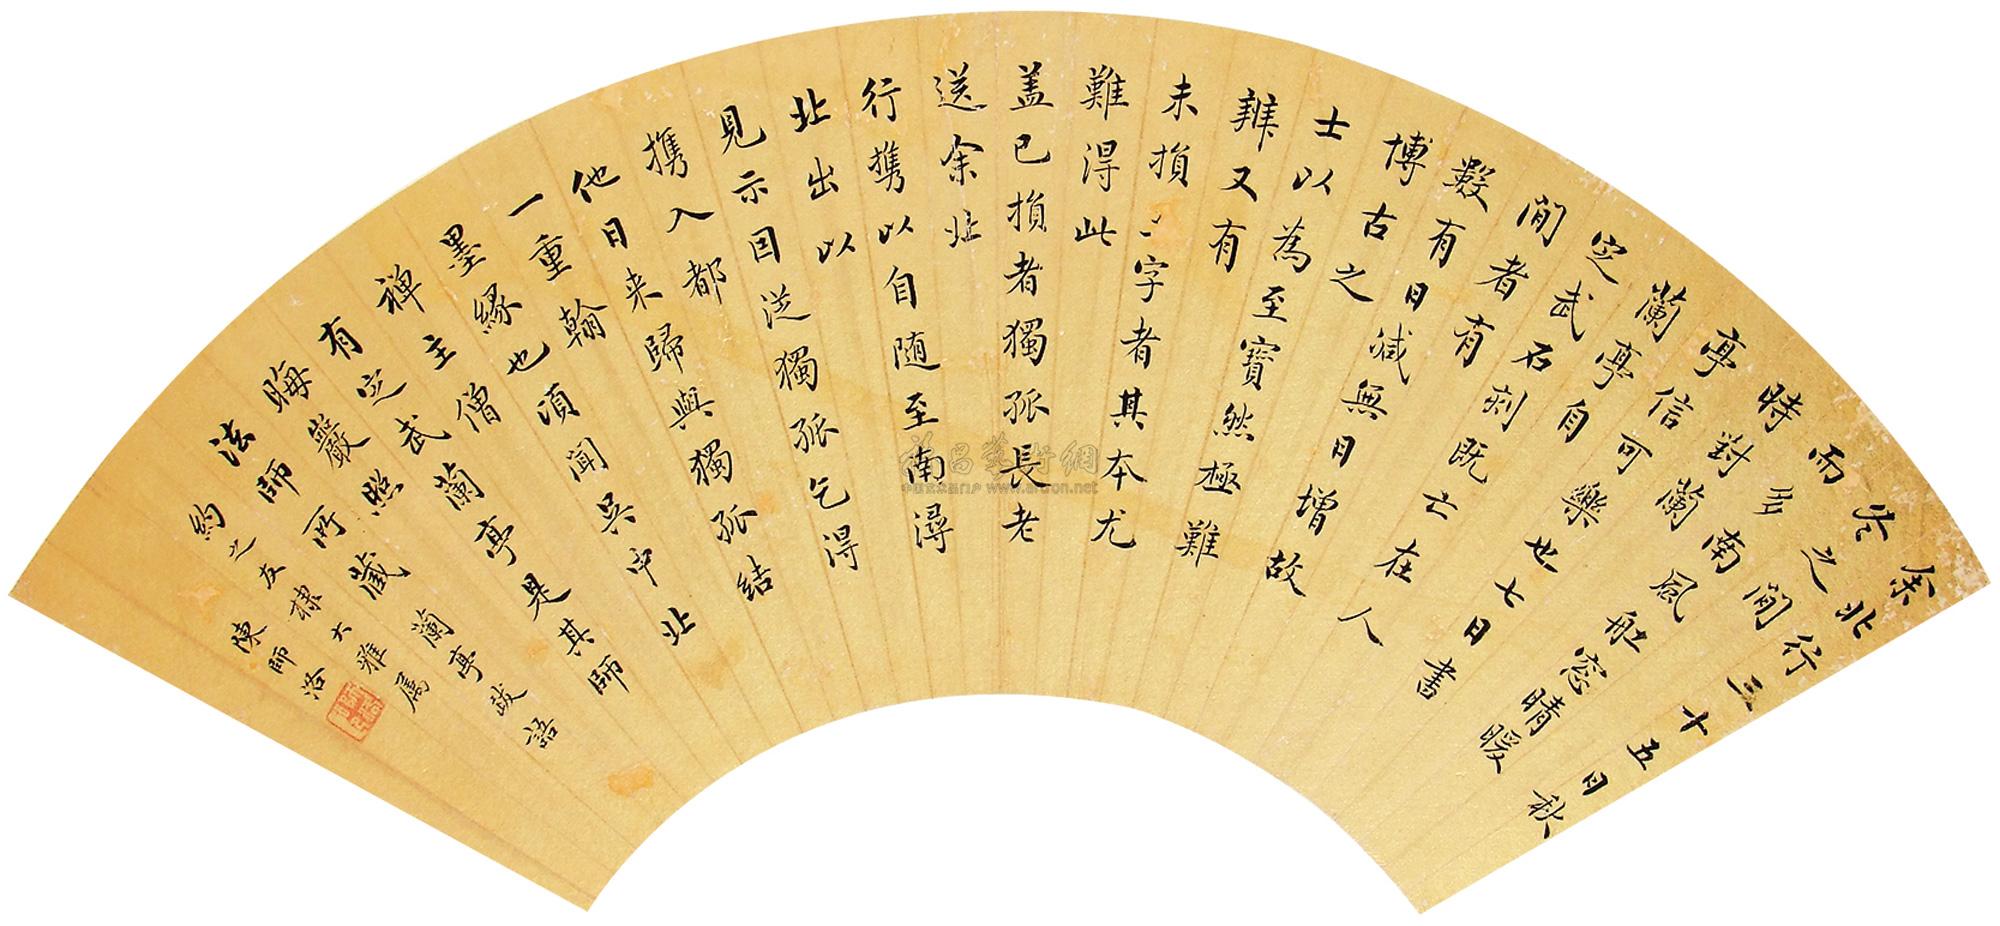 余北行三十五日秋
冬之間
而多南風舡窓晴暖
時對蘭
亭信可樂也七日書
蘭亭自
定武石刻既亡在人
間者有
數有日減無日增故
博古之
士以為至寶然極難
辨又有
未損字者其本尤
難得此
盖已損者獨孤長老
送余北
行携以自随至南潯
北出以
見示因從獨孤乞得
携入都
他日来歸與獨孤結
一重翰
墨緣也頃聞吳中北
禅主僧
有定武蘭亭是其師
晦巖照
法師所藏 蘭亭跋語
約之友棣大雅属
陳師洛
www.artron.net